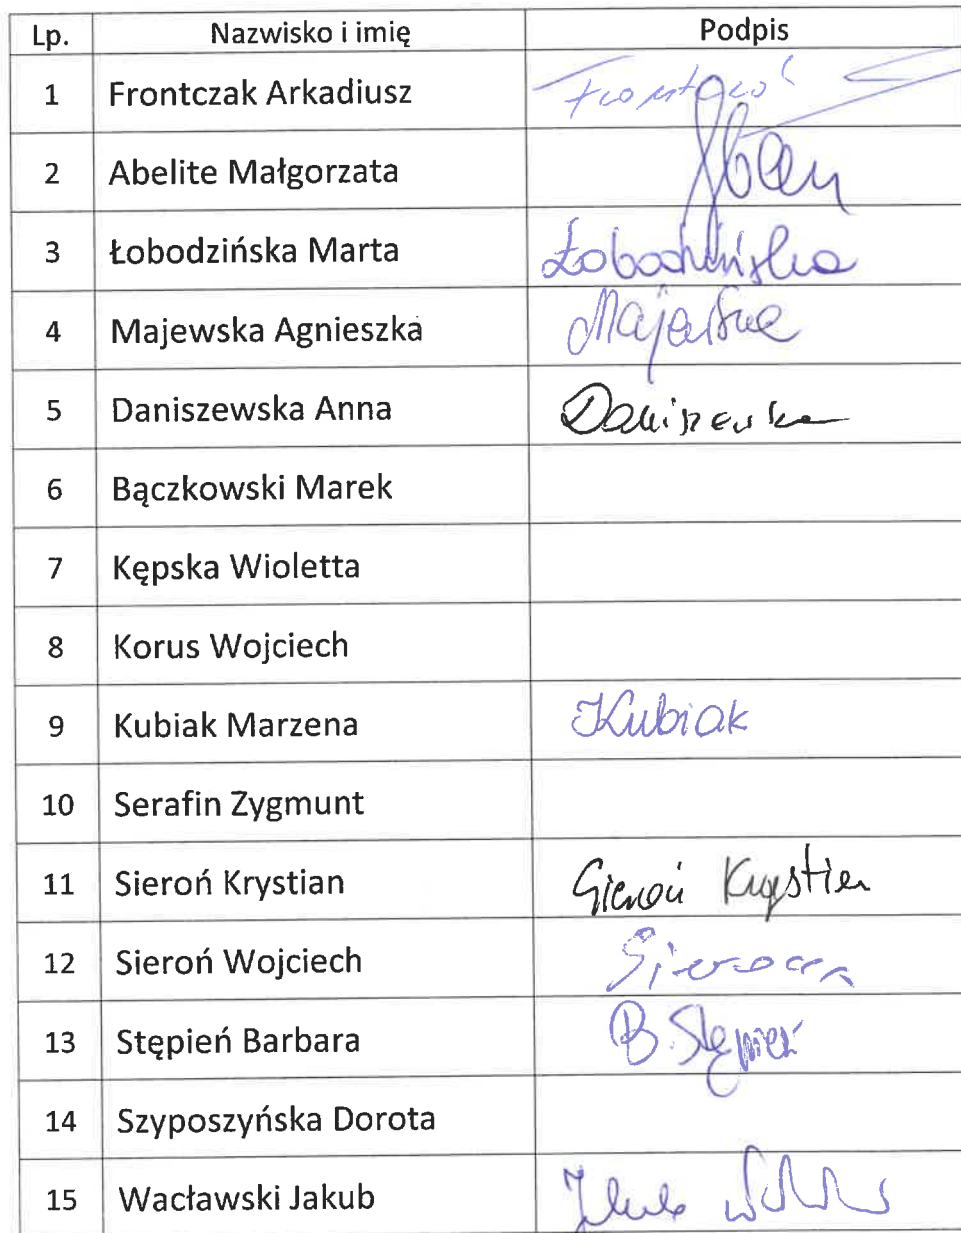 Lp. Nazwisko i imię Podpis
1 Frontczak Arkadiusz
2 Abelite Małgorzata
3 Łobodzińska Marta Łobodzińska
4 Majewska Agnieszka Majewska
5 Daniszewska Anna Daniszewska
6 Bączkowski Marek
7 Kępska Wioletta
8 Korus Wojciech
9 Kubiak Marzena Kubiak
10 Serafin Zygmunt
11 Sieroń Krystian Sieroń Krystian
12 Sieroń Wojciech
13 Stępień Barbara B. Stępień
14 Szyposzyńska Dorota
15 Wacławski Jakub Jakub